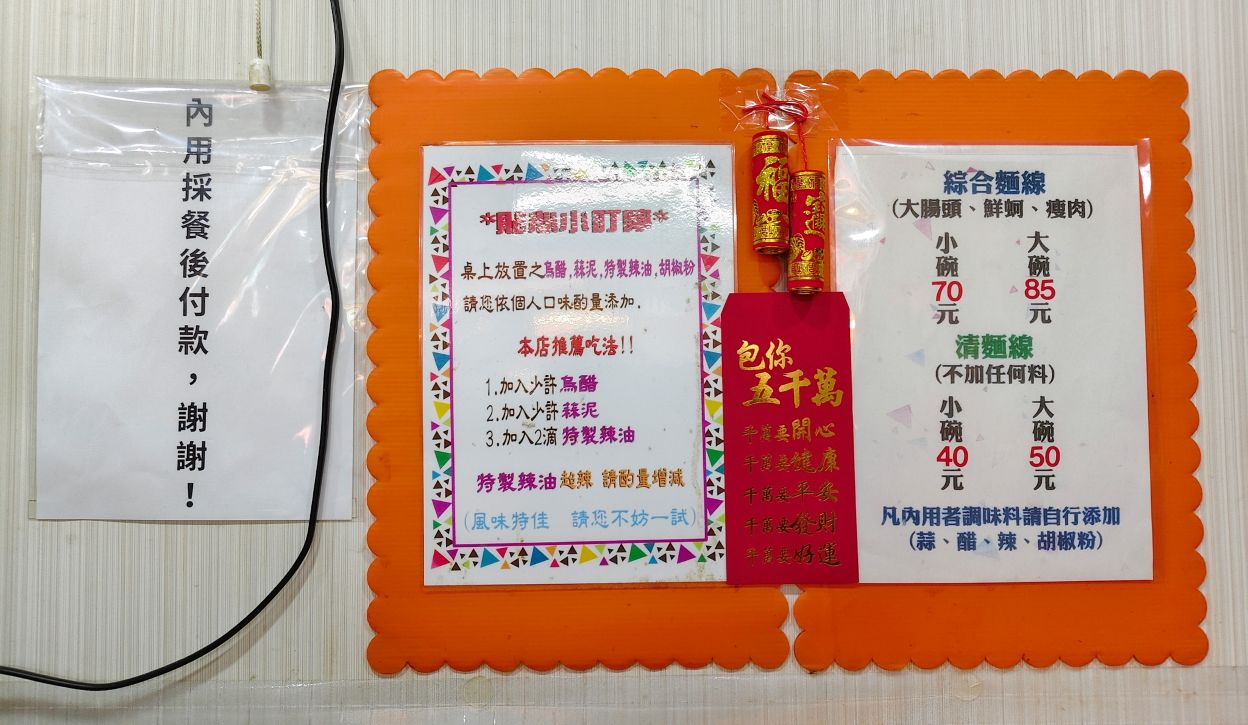 內用採餐後付款，謝謝！
*貼心小叮嚀*
桌上放置之烏醋,蒜泥,特製辣油,胡椒粉
請您依個人口味酌量添加.
本店推薦吃法!!
1.加入少許烏醋
2.加入少許蒜泥
3.加入2滴特製辣油
特製辣油超辣 請酌量增減
(風味特佳 請您不妨一試)
福
包你
五千萬
千萬要開心
千萬要健康
千萬要平安
千萬要發財
千萬要好運
綜合麵線
(大腸頭、鮮蚵、瘦肉)
小碗70元
大碗85元
清麵線
(不加任何料)
小碗40元
大碗50元
凡內用者調味料請自行添加
(蒜、醋、辣、胡椒粉)